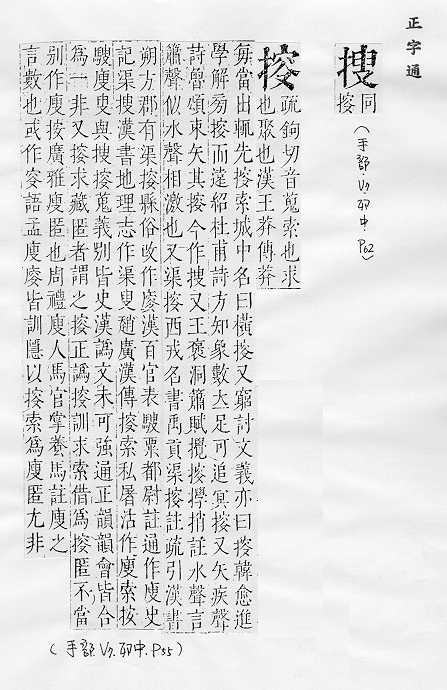 正字通
搜 同𢯱
(手部 V7. 卯中. P62)
𢯱 疏鉤切音蒐索也求
也聚也漢王莽傳莽
每當出輒先𢯱索城中名曰橫𢯱又窮討文義亦曰𢯱韓愈進
學解旁𢯱而遠紹杜甫詩方知象數大足可追冥𢯱又矢疾聲
詩魯頌束矢其𢯱今作搜又王褒洞簫賦攪𢯱捎註水聲言
簫聲似水聲相激也又渠𢯱西戎名書禹貢渠𢯱註疏引漢書
朔方郡有渠𢯱縣俗改作廋漢百官表騪粟都尉註通作廋史
記渠搜漢書地理志作渠叟趙廣漢傳𢯱索私屠沽作廋索按
騪廋叟與搜𢯱蒐義別皆史漢譌文未可強通正韻韻會皆合
為一非又𢯱求藏匿者謂之𢯱正譌𢯱訓求索借為𢯱匿不當
別作廋按廣雅廋匿也周禮廋人馬官掌養馬註廋之
言數也或作語孟廋皆訓隱以𢯱索為廋匿尤非
(手部 V7. 卯中. P55)